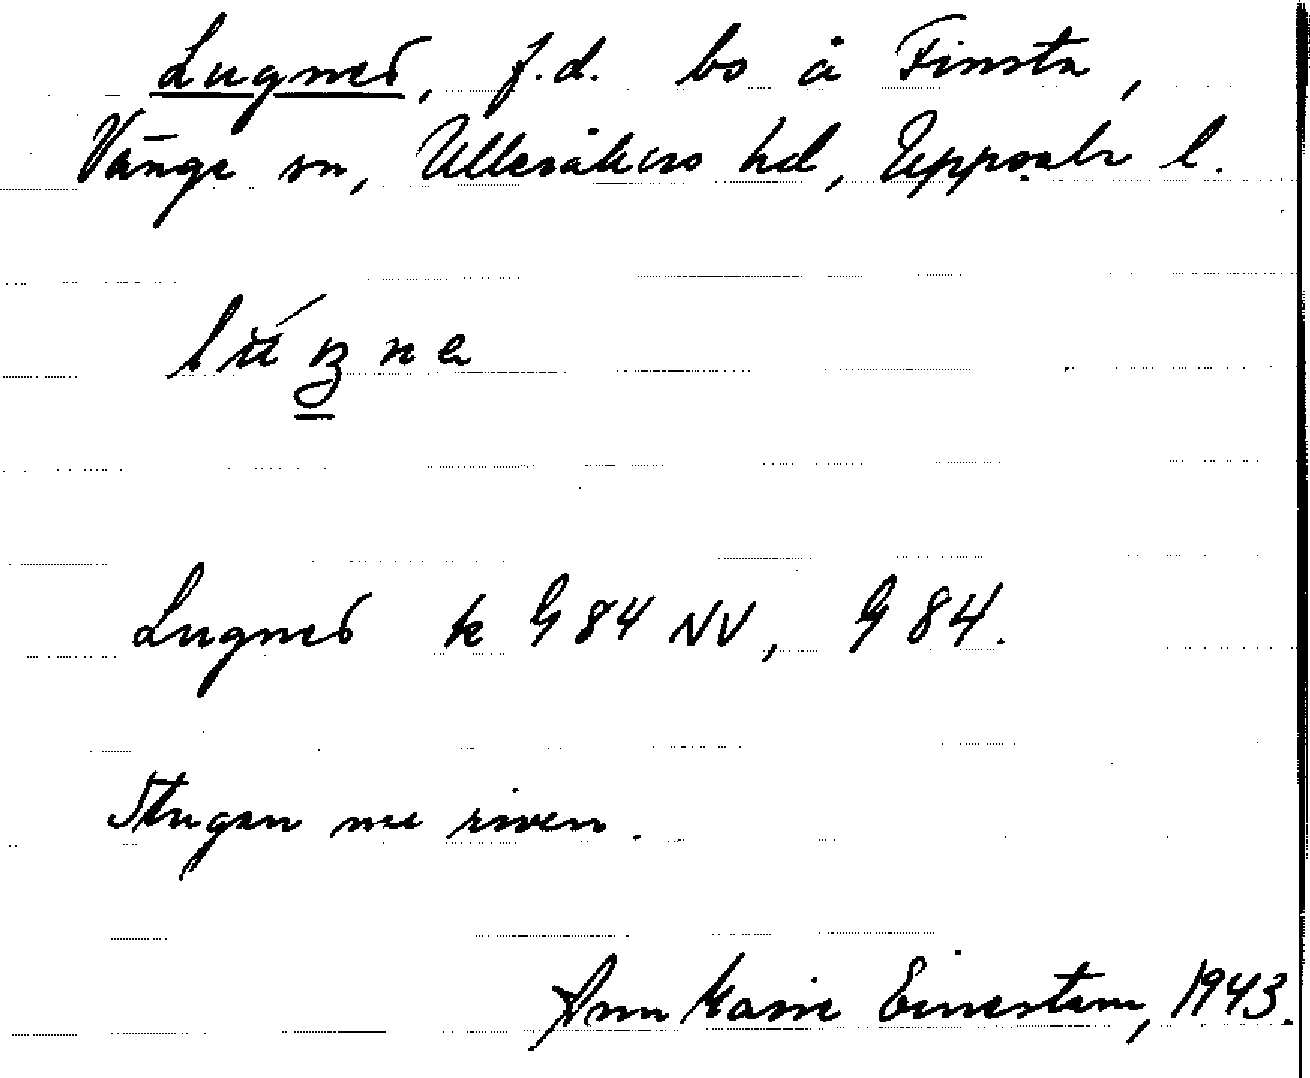 Lugnet, f.d. bo å Finsta,
Vänge sn, Ulleråkers hd, Uppsala l.
Lugnet k G 84 NV, G 84.
Stugan nu riven.
Ann Marie Einerstam, 1943.